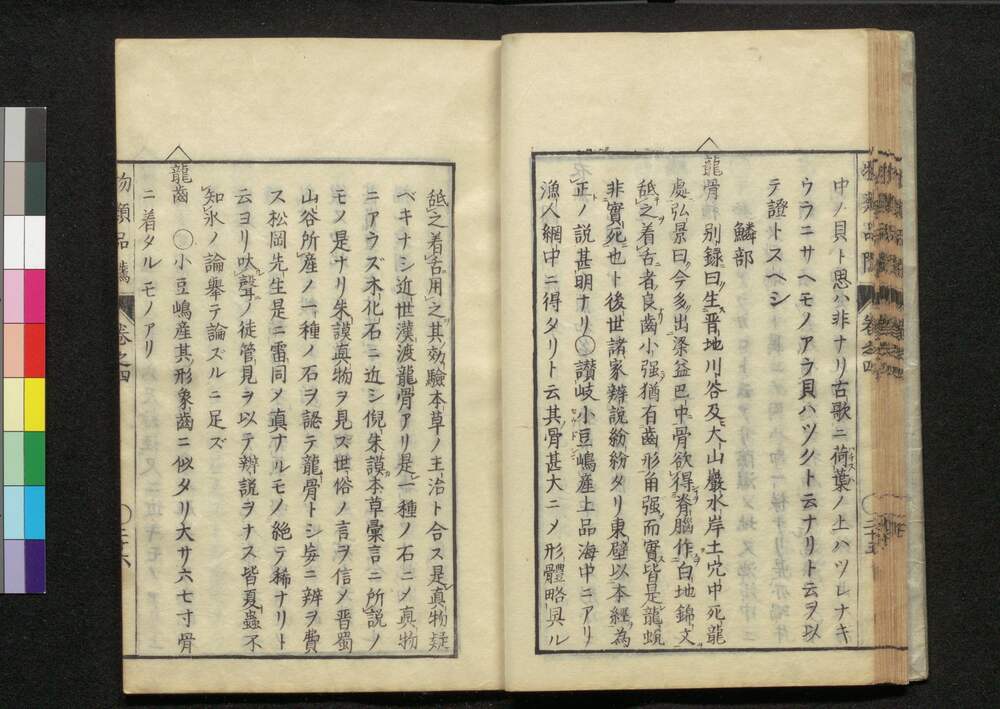 中ノ貝ト思ハ非ナリ古歌ニ荷葉ノ上ハツレナキ
ウラニサヘモノアラ貝ハツクト云ナリト云ヲ以
テ證トスヘシ
鱗部
龍骨 別録曰生晋地川谷及大山巖水岸土穴中死龍
處弘景曰今多出梁益巴中骨欲得脊腦作白地錦文
舐之着舌者良齒小强猶有齒形角强而實皆是龍蛻
非實死也ト後世諸家辨說紛紛タリ東壁以本經為
正ノ說甚明ナリ〇讃岐小豆嶋産上品海中ニアリ
漁人網中ニ得タリト云其骨甚大ニメ形體略具ル
舐之着舌用之其效驗本草ノ主治ト合ス是真物疑
ベキナシ近世漢渡龍骨アリ是一種ノ石ニメ真物
ニアラズ木化石ニ近シ倪朱謨本草彙言ニ所說ノ
モノ是ナリ朱謨真物ヲ見ズ世俗ノ言ヲ信メ晋蜀
山谷所產ノ一種ノ石ヲ認テ龍骨トシ妄ニ辨ヲ費
ス松岡先生是ニ雷同メ眞ナルモノ絶テ稀ナリト
云ヨリ吠聲ノ徒管見ヲ以テ辨說ヲナス皆夏蟲不
知氷ノ論擧テ論ズルニ足ズ
龍齒 〇小豆嶋産其形象齒ニ似タリ大サ六七寸骨
ニ着タルモノアリ
物類品隲 卷之四 〇二十六